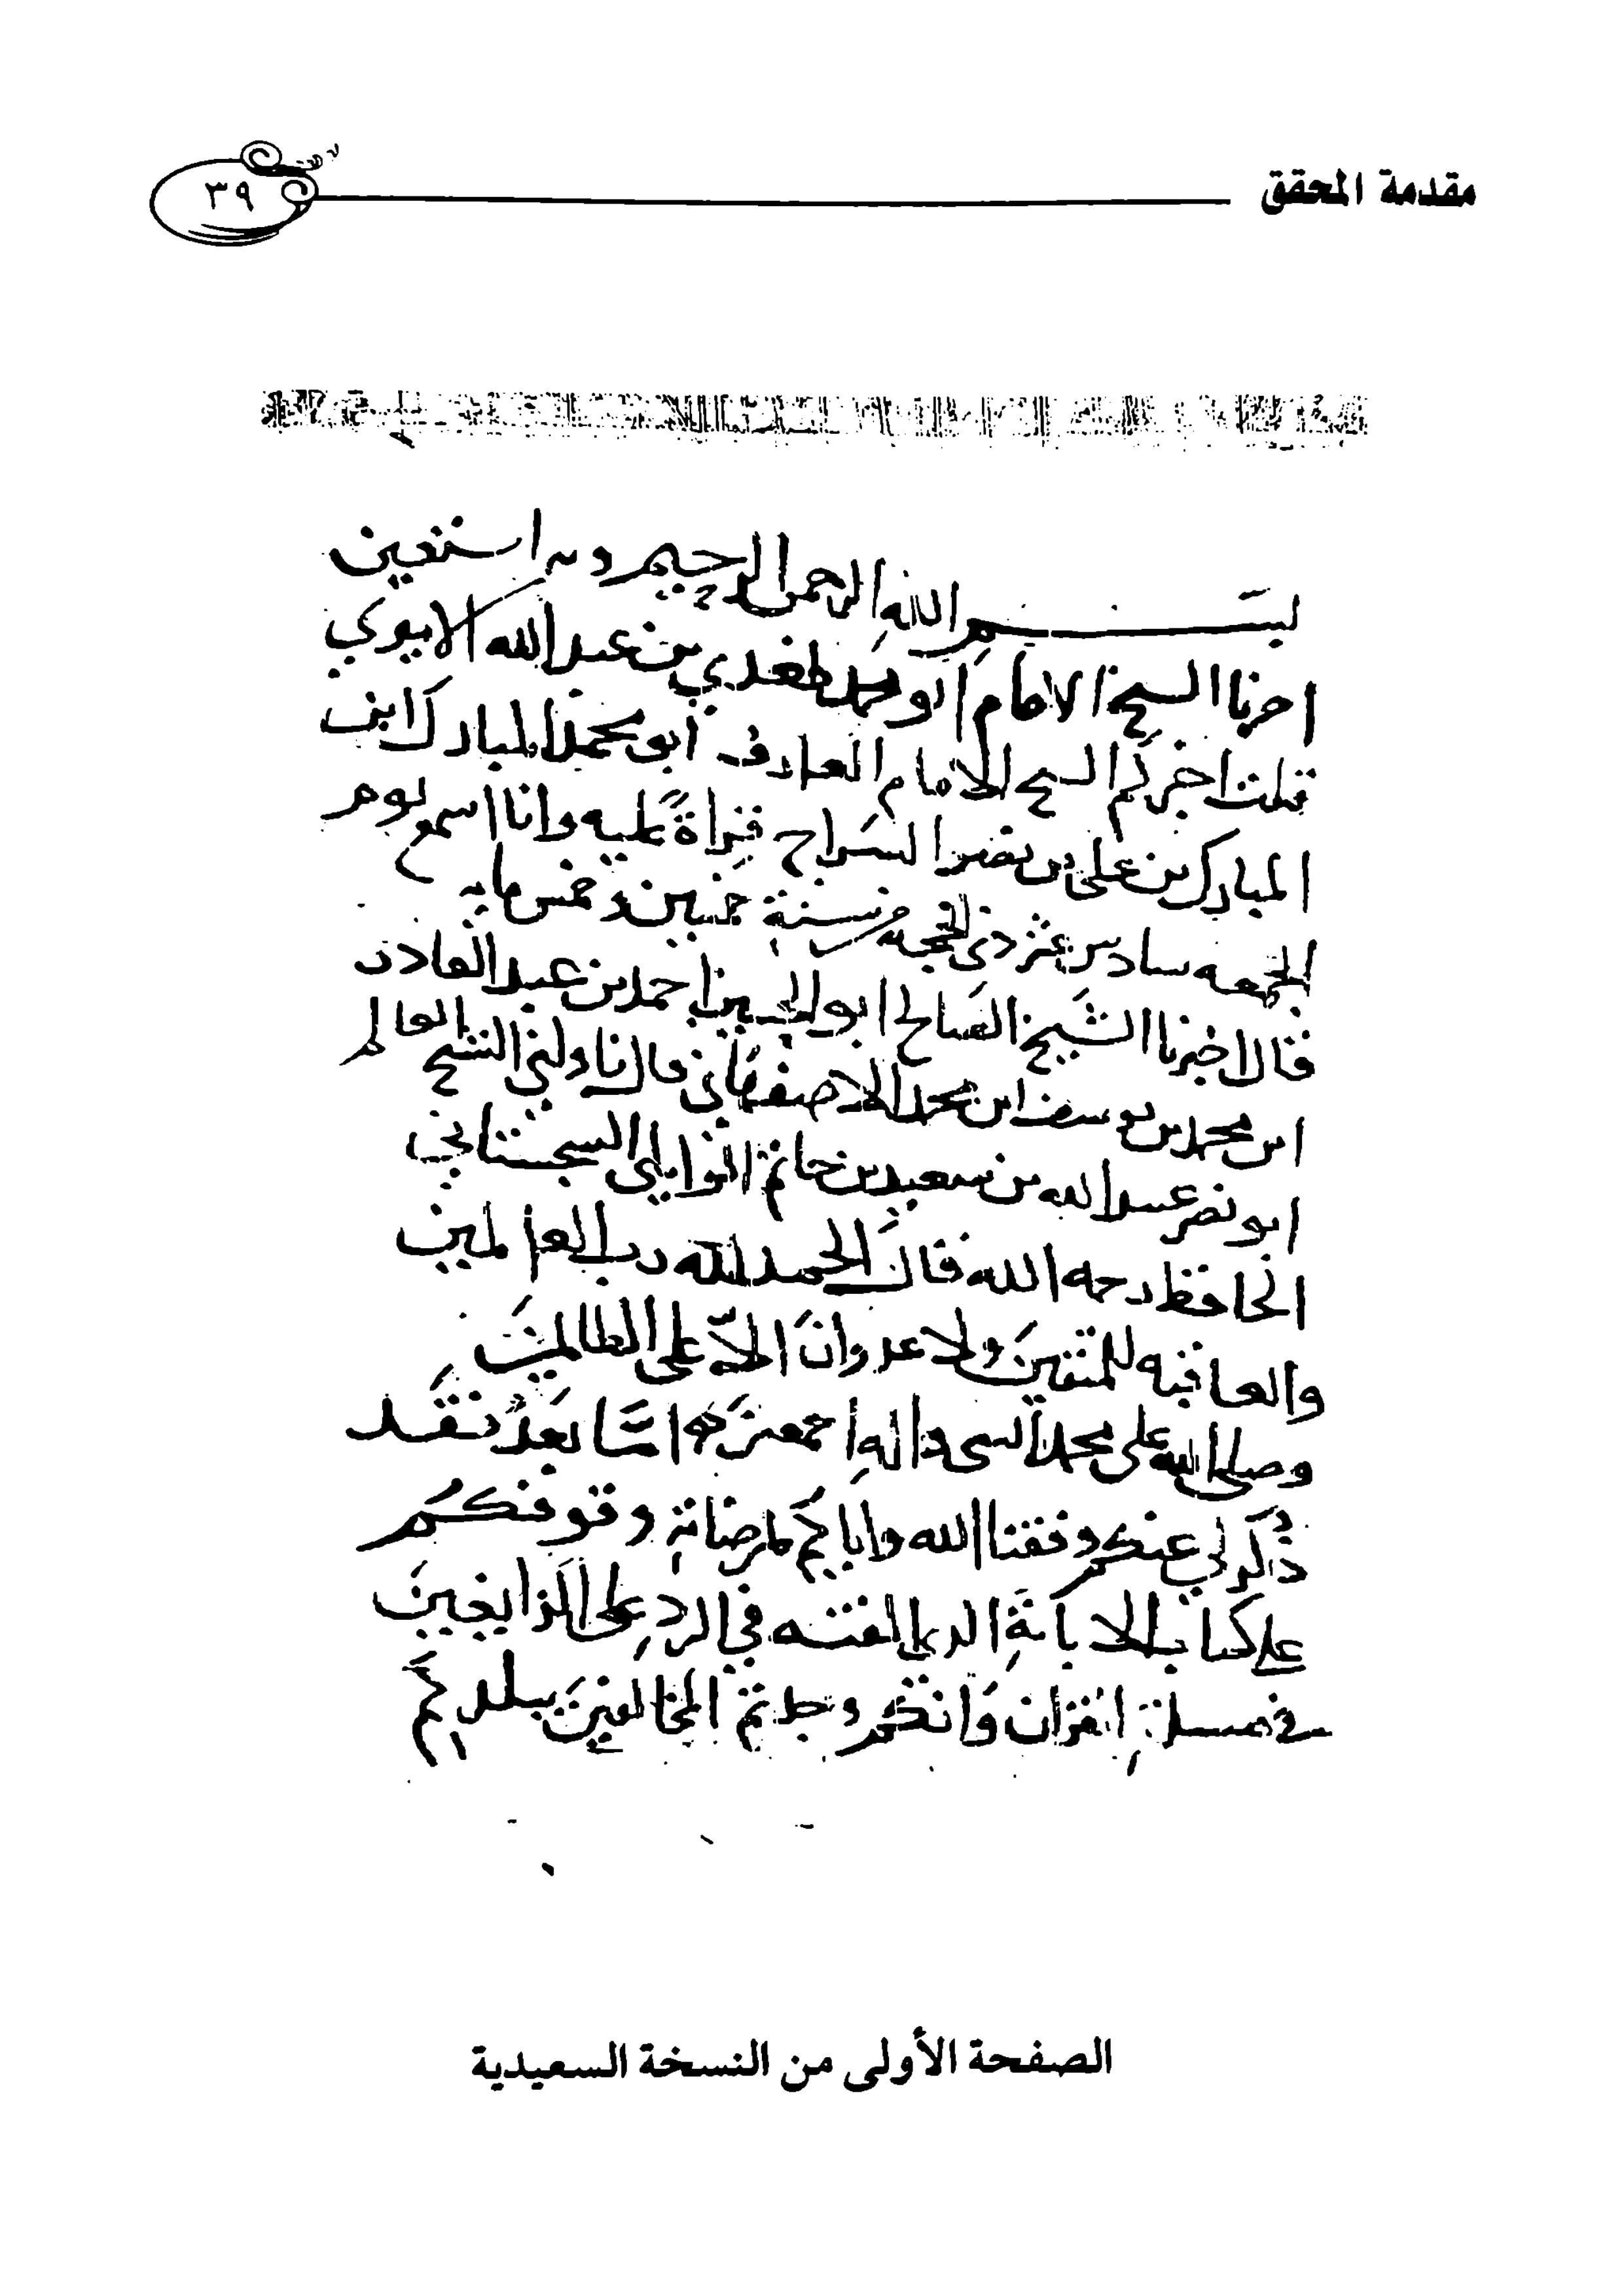 مقدمة المحقق
٣٩
بسم الله الرحمن الرحيم وبه استعين
اخبرنا الشيخ الامام ابو محمد طغدي بن عبد الله الاميري
قلت اخبركم الشيخ الامام العارف ابو محمد المبارك ابن
المبارك بن علي بن نصر السراج قراةً عليه وانا اسمع يوم
الجمعه سادس عشر ذي الحجه من سنة خمسين وخمس مايه
قال اخبرنا الشيخ الصالح ابو الحسين احمد بن عبد القادر
ابن محمد بن يوسف ابن محمد الاصفهاني قال ناولني الشيخ العالم
ابو نصر عبيد الله بن سعيد بن حاتم الوايلي السجستاني
الحافظ رحمه الله فقال الحمد لله رب العالمين
والعاقبه للمتقين ولا عدوان الا على الظالمين
وصلى الله على محمد النبي واله اجمعين اما بعد فقد
ذكر لي عنكم وفقنا الله واياكم لمرضاته وقوفكم
على كتاب الابانة الذي الفته في الرد على الزايغين
في مسلة القران وانكم وجدتم المخالفين ببلدكم
الصفحة الأولى من النسخة السعيدية